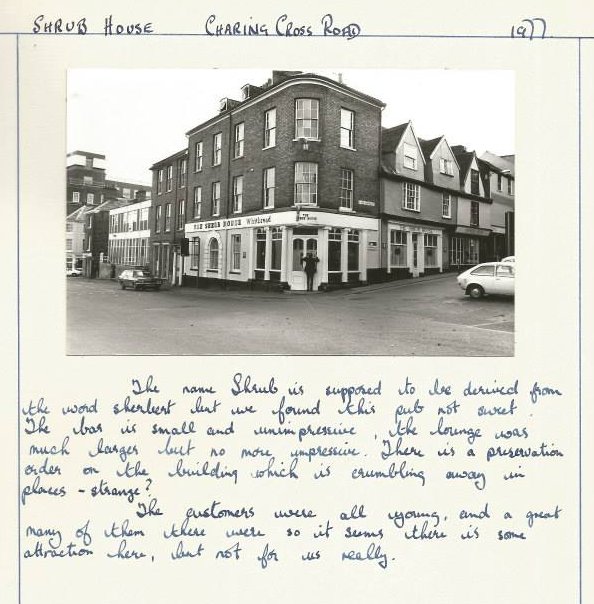 SHRUB HOUSE CHARING CROSS ROAD 1977.
THE SHRUB HOUSE Whitbread
The name Shrub is supposed to be derived from
the word sherbert but we found this pub not sweet.
The bar is small and unimpressive, the lounge was
much larger but no more impressive. There is a preservation
order on the building which is crumbling away in
places - strange?
The customers were all young, and a great
many of them there were so it seems there is some
attraction here, but not for us really.